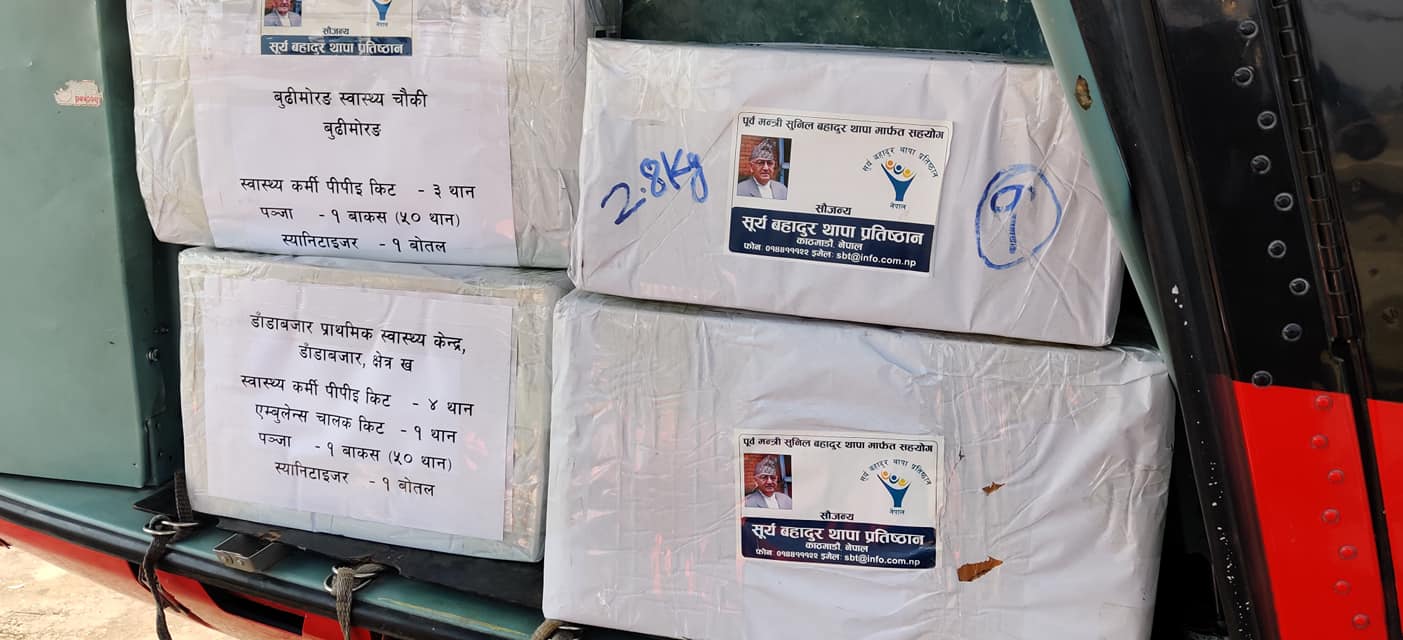 सौजन्य
सूर्य बहादुर थापा प्रतिष्ठान
बुढीमोरङ स्वास्थ्य चौकी
बुढीमोरङ
स्वास्थ्य कर्मी पीपीइ किट - ३ थान
पञ्जा - १ बाकस (५० थान)
स्यानिटाइजर - १ बोतल
पूर्व मन्त्री सुनिल बहादुर थापा मार्फत सहयोग
सूर्य बहादुर थापा प्रतिष्ठान
नेपाल
सौजन्य
सूर्य बहादुर थापा प्रतिष्ठान
काठमाडौं, नेपाल
फोन: ०१४४११११२२ इमेल: sbt@info.com.np
2.8Kg
डाँडाबजार प्राथमिक स्वास्थ्य केन्द्र,
डाँडाबजार, क्षेत्र ख
स्वास्थ्य कर्मी पीपीइ किट - ४ थान
एम्बुलेन्स चालक किट - १ थान
पञ्जा - १ बाकस (५० थान)
स्यानिटाइजर - १ बोतल
पूर्व मन्त्री सुनिल बहादुर थापा मार्फत सहयोग
सूर्य बहादुर थापा प्रतिष्ठान
नेपाल
सौजन्य
सूर्य बहादुर थापा प्रतिष्ठान
काठमाडौं, नेपाल
फोन: ०१४४११११२२ इमेल: sbt@info.com.np